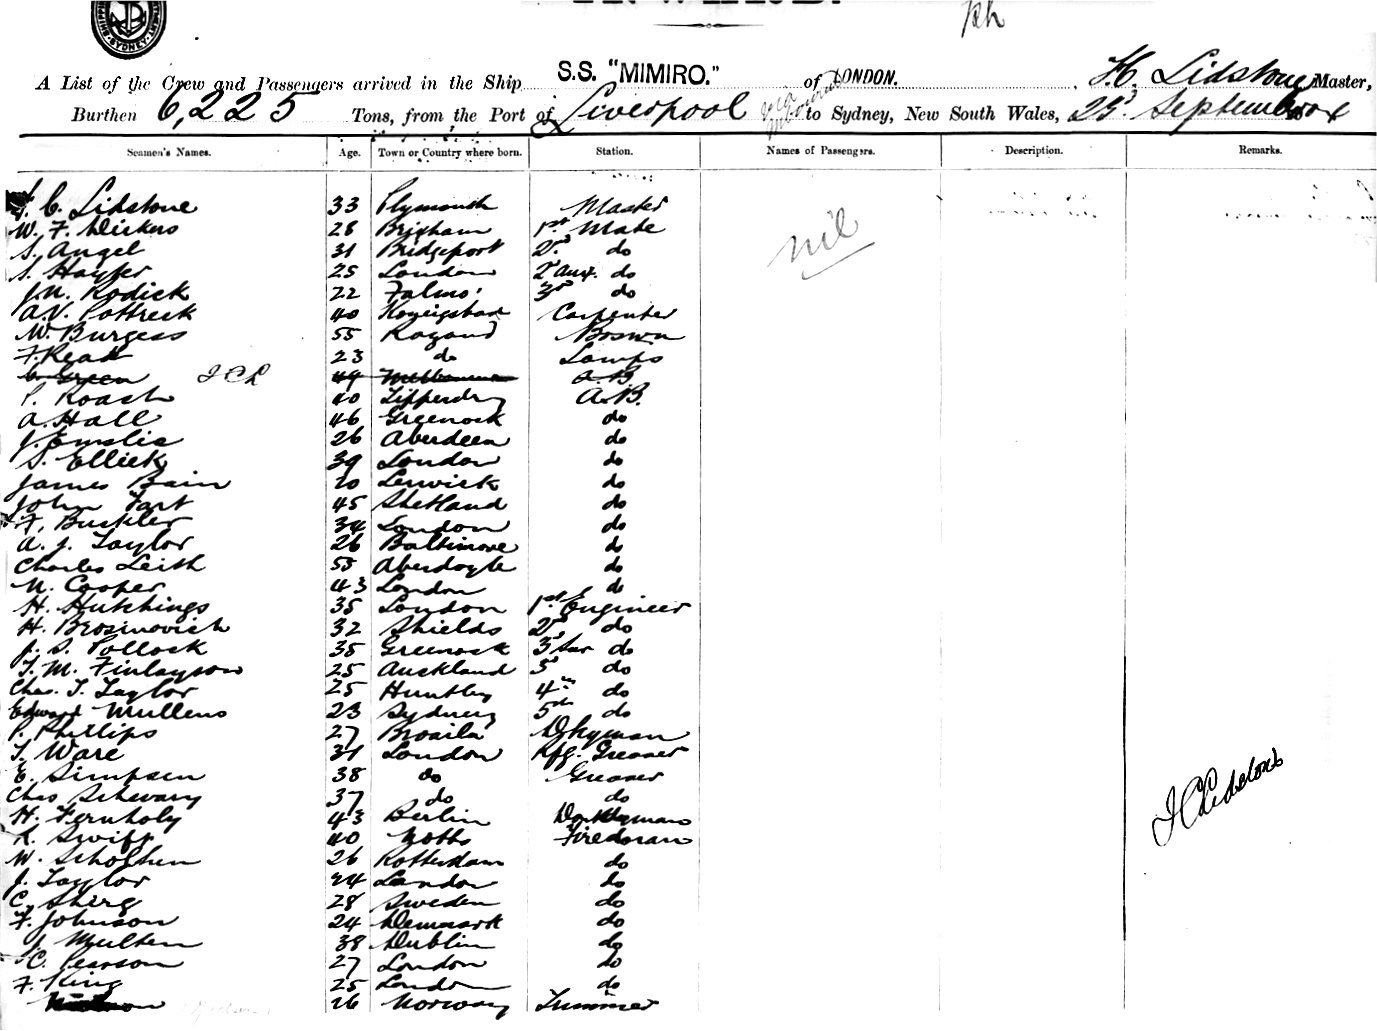 INWARD.
A List of the Crew and Passengers arrived in the Ship S.S. "MIMIRO." of LONDON. Lidstone Master,
Burthen 6,225 Tons, from the Port of Liverpool via to Sydney, New South Wales, September
Seamen's Names. Age. Town or Country where born. Station. Names of Passengers. Description. Remarks.
C. Lidstone 33 Plymouth Master nil
W. F. 28 Brixham 1st Mate
S. Angel 31 Bridgeport 2d do
S. Hayter 25 London 2d Aux. do
J.N. Rodick 22 Falmo' 3rd do
A.V. 40 Carpenter
W. Burgess 55 Boswn
F. 23 do Lamps
C. Green 49 Melbourne A.B
P. Roach 40 Tipperary A.B.
A. Hall 46 Greenock do
J. Emslie 26 Aberdeen do
S. Ellick 39 London do
James Bain 20 Lerwick do
John 45 Shetland do
F. Buckler 34 London do
A. J. Taylor 26 Baltimore do
Charles Leith 55 do
N. Cooper 43 London do
H. Hutchings 35 London 1st Engineer
H. Brosinovich 32 Shields 2d do
J. S. Pollock 35 Greenock 3d do
T. M. Finlayson 25 Auckland 3d do
Chas. T. Taylor 25 Huntley 4th do
Edward Mullens 23 Sydney 5th do
P. Phillips 27 Braila Dkyman
T. Ware 31 London Rfg. Greaser
E. Simpson 38 do Greaser
Chas 37 do do
H. Fernholy 43 Berlin
R. Swift 40 Notts Fireman
W. Scholten 26 Rotterdam do
J. Taylor 24 London do
C. 28 Sweden do
F. Johnson 24 Denmark do
J. Mullen 38 Dublin do
C. Pearson 27 London do
F. King 25 London do
26 Norway Trimmer